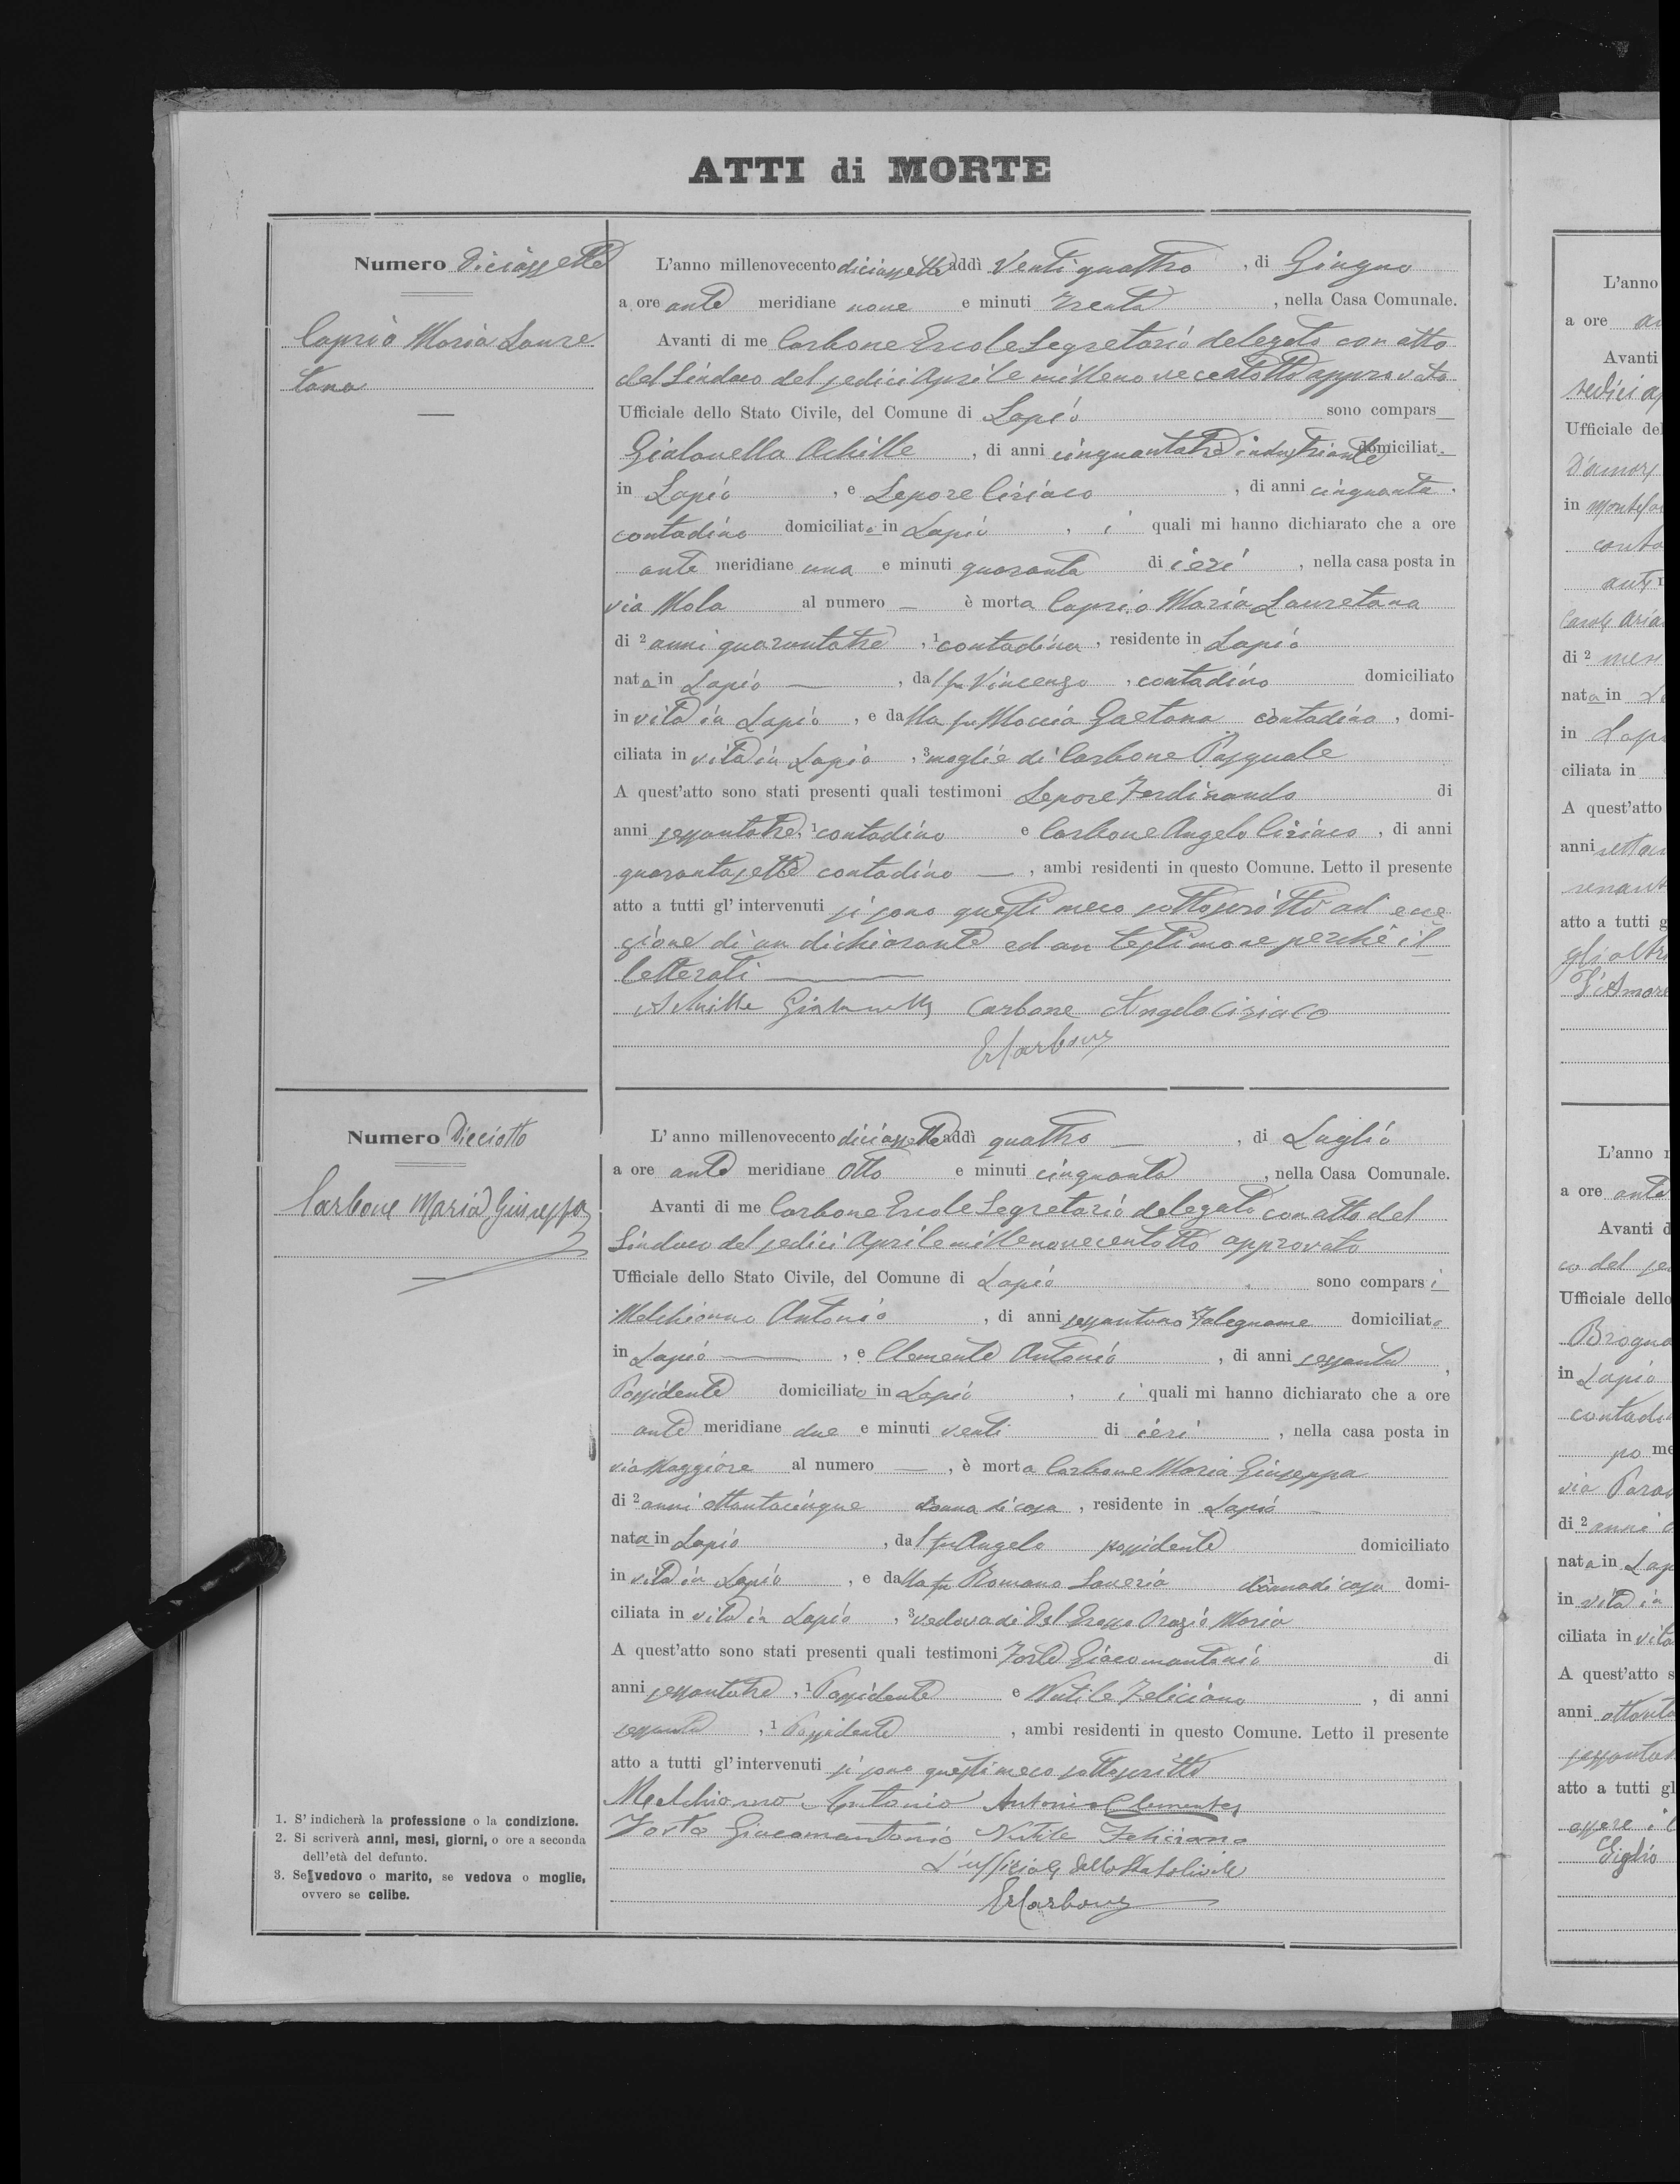 ATTI di MORTE
Numero Diciassette
Caprio Maria Laure
tana
L'anno millenovecento diciassette addì ventiquattro, di Giugno
a ore ante meridiane nove e minuti trenta, nella Casa Comunale.
Avanti di me Carbone Ercole Segretario delegato con atto
del Sindaco del sedici Aprile millenovecentotto approvato
Ufficiale dello Stato Civile, del Comune di Lapio sono compars
Gialanella Achille, di anni cinquantatre industriante domiciliat
in Lapio, e Lepore Ciriaco, di anni cinquanta
contadino domiciliato in Lapio, i quali mi hanno dichiarato che a ore
ante meridiane una e minuti quaranta di ieri, nella casa posta in
via Mola al numero — è morta Caprio Maria Lauretana
di ² anni quarantatre, ¹ contadina, residente in Lapio
nata in Lapio —, dal fu Vincenzo, contadino domiciliato
in vita in Lapio, e dalla fu Moccia Gaetana contadina, domi-
ciliata in vita in Lapio, ³ moglie di Carbone Pasquale
A quest'atto sono stati presenti quali testimoni Lepore Ferdinando di
anni sessantatre, ¹ contadino e Carbone Angelo Ciriaco, di anni
quarantasette contadino —, ambi residenti in questo Comune. Letto il presente
atto a tutti gl' intervenuti si sono questi meco sottoscritti ad ecce
zione di un dichiarante ed un testimone perchè il
letterati —
Achille Gialanella Carbone Angelo Ciriaco
ErCarbone
Numero Diciotto
Carbone Maria Giuseppa
L' anno millenovecento diciassette addì quattro —, di Luglio
a ore ante meridiane otto e minuti cinquanta, nella Casa Comunale.
Avanti di me Carbone Ercole Segretario delegato con atto del
Sindaco del sedici Aprile millenovecentotto approvato
Ufficiale dello Stato Civile, del Comune di Lapio sono comparsi
Melchionno Antonio, di anni sessantuno ¹ Falegname domiciliato
in Lapio —, e Clemente Antonio, di anni sessanta,
Possidente domiciliato in Lapio, i quali mi hanno dichiarato che a ore
ante meridiane due e minuti venti di ieri, nella casa posta in
via Maggiore al numero —, è morta Carbone Maria Giuseppa
di ² anni ottantacinque donna di casa, residente in Lapio
nata in Lapio, dal fu Angelo possidente domiciliato
in vita in Lapio, e dalla fu Romano Saveria donna di casa domi-
ciliata in vita in Lapio, ³ vedova di Del Grosso Orazio Maria
A quest'atto sono stati presenti quali testimoni Forte Giacomantonio di
anni sessantatre, ¹ Possidente e Nutile Feliciano, di anni
sessanta, ¹ Possidente, ambi residenti in questo Comune. Letto il presente
atto a tutti gl' intervenuti si sono questi meco sottoscritti
Melchionno Antonio Antonio Clemente
Forte Giacomantonio Nutile Feliciano
L'uffiziale dello Stato Civile
ErCarbone
1. S' indicherà la professione o la condizione.
2. Si scriverà anni, mesi, giorni, o ore a seconda
dell'età del defunto.
3. Se vedovo o marito, se vedova o moglie,
ovvero se celibe.
L'anno
a ore
Avanti
sedici
Ufficiale del
D'amore
in
conta
ante
di ² mesi
nata in
in Lapi
ciliata in
A quest'atto
anni
atto a tutti g
gli altri
D'Amore
L'anno
a ore ante
Avanti d
co del
Ufficiale dello
in Lapio
contadi
via
di ² anni
nata in Lap
in vita in
ciliata in vita
A quest'atto s
anni ottanta
atto a tutti gl
Giglio